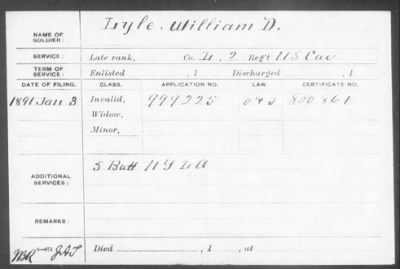 NAME OF SOLDIER: Lyle. William D.
SERVICE: Late rank, Co. L, 2 Reg't U S Cav
TERM OF SERVICE: Enlisted , 1 Discharged , 1
DATE OF FILING. CLASS. APPLICATION NO. LAW CERTIFICATE NO.
1891 Jan. 3 Invalid, 999225 800861
Widow,
Minor,
ADDITIONAL SERVICES: 5 Batt N Y L A
REMARKS:
Died , 1 , at